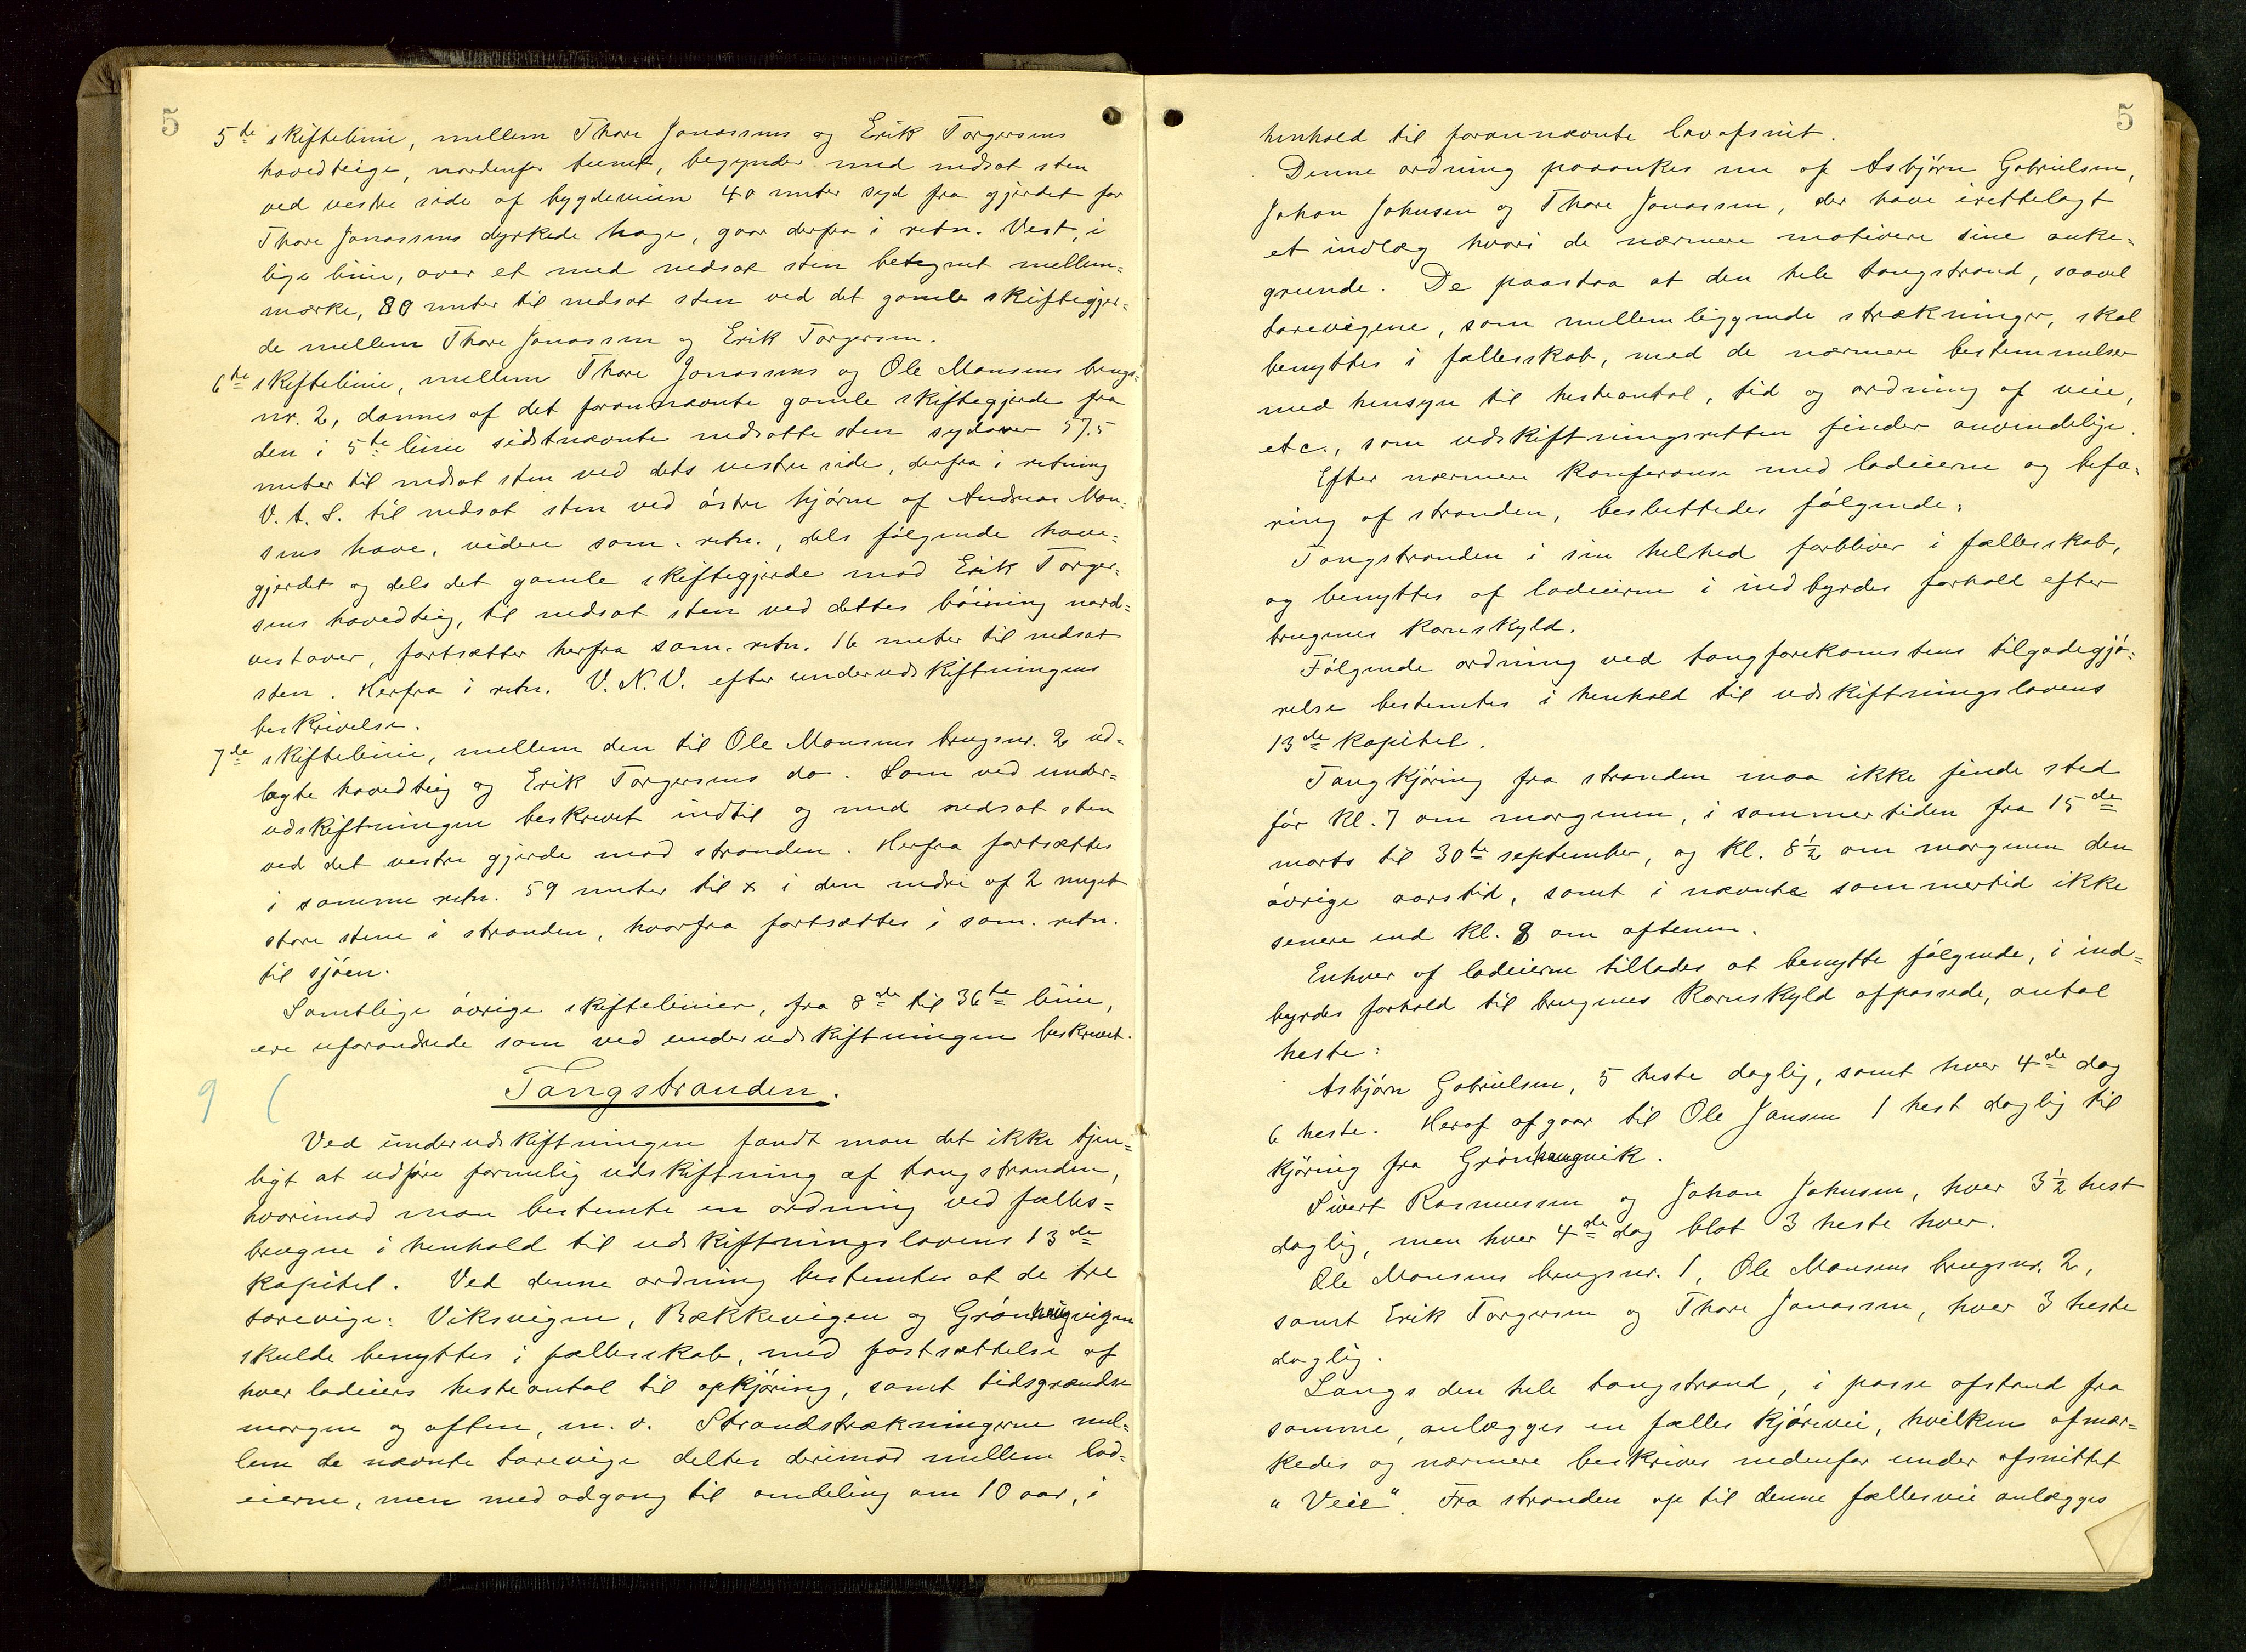 5
5de skiftelinie, mellem Thore Jonassens og Erik Torgersens
hovedteige, nordenfor tunet, begynder med nedsat sten
ved vestre side af bygdeveien 40 meter syd fra gjerdet for
Thore Jonassens dyrkede hage, gaar derfra i retn. Vest, i
lige linie, over et med nedsat sten betegnet mellem-
mærke, 80 meter til nedsat sten ved det gamle skiftegjer-
de mellem Thore Jonassen og Erik Torgersen.
6te skiftelinie, mellem Thore Jonassens og Ole Monsens brugs-
nr. 2, dannes af det forannævnte gamle skiftegjerde fra
den i 5te linie sidstnævnte nedsatte sten sydover 57.5
meter til nedsat sten ved dets vestre side, derfra i retning
V. t. S. til nedsat sten ved østre hjørne af Andreas Mon-
sens have, videre sam. retn., dels følgende have-
gjerdet og dels det gamle skiftegjerde mod Erik Torger-
sens hovedteig, til nedsat sten ved dettes bøining nord-
vestover, fortsætter herfra sam. retn. 16 meter til nedsat
sten. Herfra i retn. V. N. V. efter underudskiftningens
beskrivelse.
7de skiftelinie, mellem den til Ole Monsens brugsnr. 2 ud-
lagte hovedteig og Erik Torgersens do. Som ved under-
udskiftningen beskrevet indtil og med nedsat sten
ved det vestre gjerde mod stranden. Herfra fortsættes
i samme retn. 59 meter til x i den nedre af 2 meget
store stene i stranden, hvorfra fortsættes i sam. retn.
til sjøen.
Samtlige øvrige skiftelinier, fra 8de til 36te linie,
ere uforandrede som ved underudskiftningen beskrevet.
9 (
Tangstranden.
Ved underudskiftningen fandt man det ikke tjen-
ligt at udføre formelig udskiftning af tangstranden,
hvorimod man bestemte en ordning ved fælles-
brugne i henhold til udskiftningslovens 13de
kapitel. Ved denne ordning bestemtes at de tre
tarevige: Viksvigen, Bækkevigen og Grønhaugvigen
skulde benyttes i fællesskab, med fastsættelse af
hver lodeiers hesteantal til opkjøring, samt tidsgrændse
morgen og aften, m. v. Strandstrækningerne mel-
lem de nævnte tarevige deltes derimod mellem lod-
eierne, men med adgang til omdeling om 10 aar, i
5
henhold til forannævnte lovafsnit.
Denne ordning paaankes nu af Asbjørn Gabrielsen,
Johan Johnsen og Thore Jonassen, der have irettelagt
et indlæg hvori de nærmere motivere sine anke-
grunde. De paastaa at den hele tangstrand, saavel
tarevigene, som mellemliggende strækninger, skal
benyttes i fællesskab, med de nærmere bestemmelser
med hensyn til hesteantal, tid og ordning af veie,
etc., som udskiftningsretten finder anvendelige.
Efter nærmere konferanse med lodeierne og befa-
ring af stranden, besluttedes følgende:
Tangstranden i sin helhed forbliver i fællesskab,
og benyttes af lodeierne i indbyrdes forhold efter
brugenes kornskyld.
Følgende ordning ved tangforekomstens tilgodegjø-
relse bestemtes i henhold til udskiftningslovens
13de kapitel.
Tangkjøring fra stranden maa ikke finde sted
før kl. 7 om morgenen, i sommertiden fra 15de
marts til 30te september, og kl. 8½ om morgenen den
øvrige aarstid, samt i nævnte sommertid ikke
senere end kl. 8 om aftenen.
Enhver af lodeierne tillades at benytte følgende, i ind-
byrdes forhold til brugenes kornskyld afpassede, antal
heste:
Asbjørn Gabrielsen, 5 heste daglig, samt hver 4de dag
6 heste. Heraf afgaar til Ole Jansen 1 hest daglig til
kjøring fra Grønhaugvik.
Sivert Rasmussen og Johan Johnsen, hver 3½ hest
daglig, men hver 4de dag blot 3 heste hver.
Ole Monsens brugsnr. 1, Ole Monsens brugsnr. 2,
samt Erik Torgersen og Thore Jonassen, hver 3 heste
daglig.
Langs den hele tangstrand, i passe afstand fra
samme, anlægges en fælles kjørevei, hvilken afmær-
kedes og nærmere beskrives nedenfor under afsnittet
"Veie". Fra stranden op til denne fællesvei anlægges